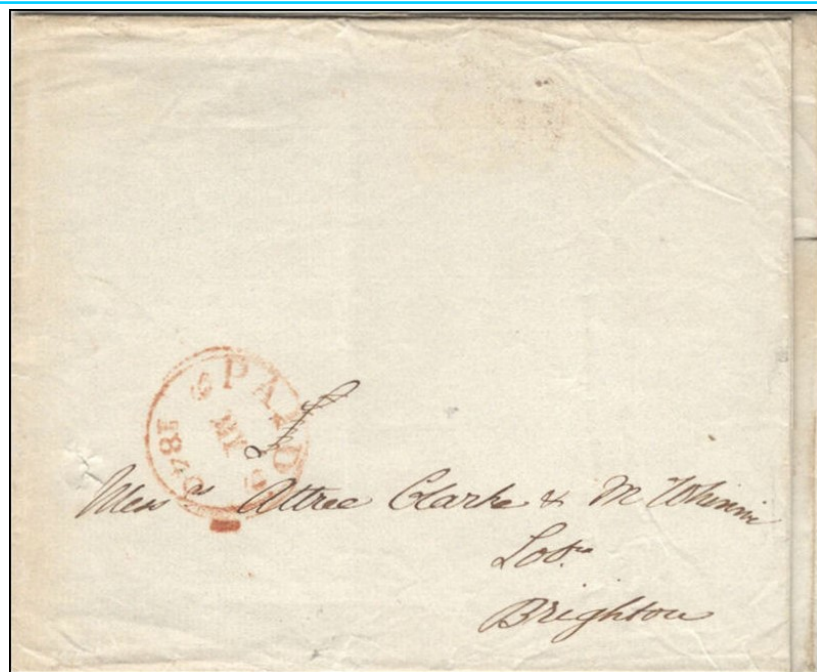 PAID
MY
1840
Messrs Attree Clarke & McWhinnie
Solrs
Brighton